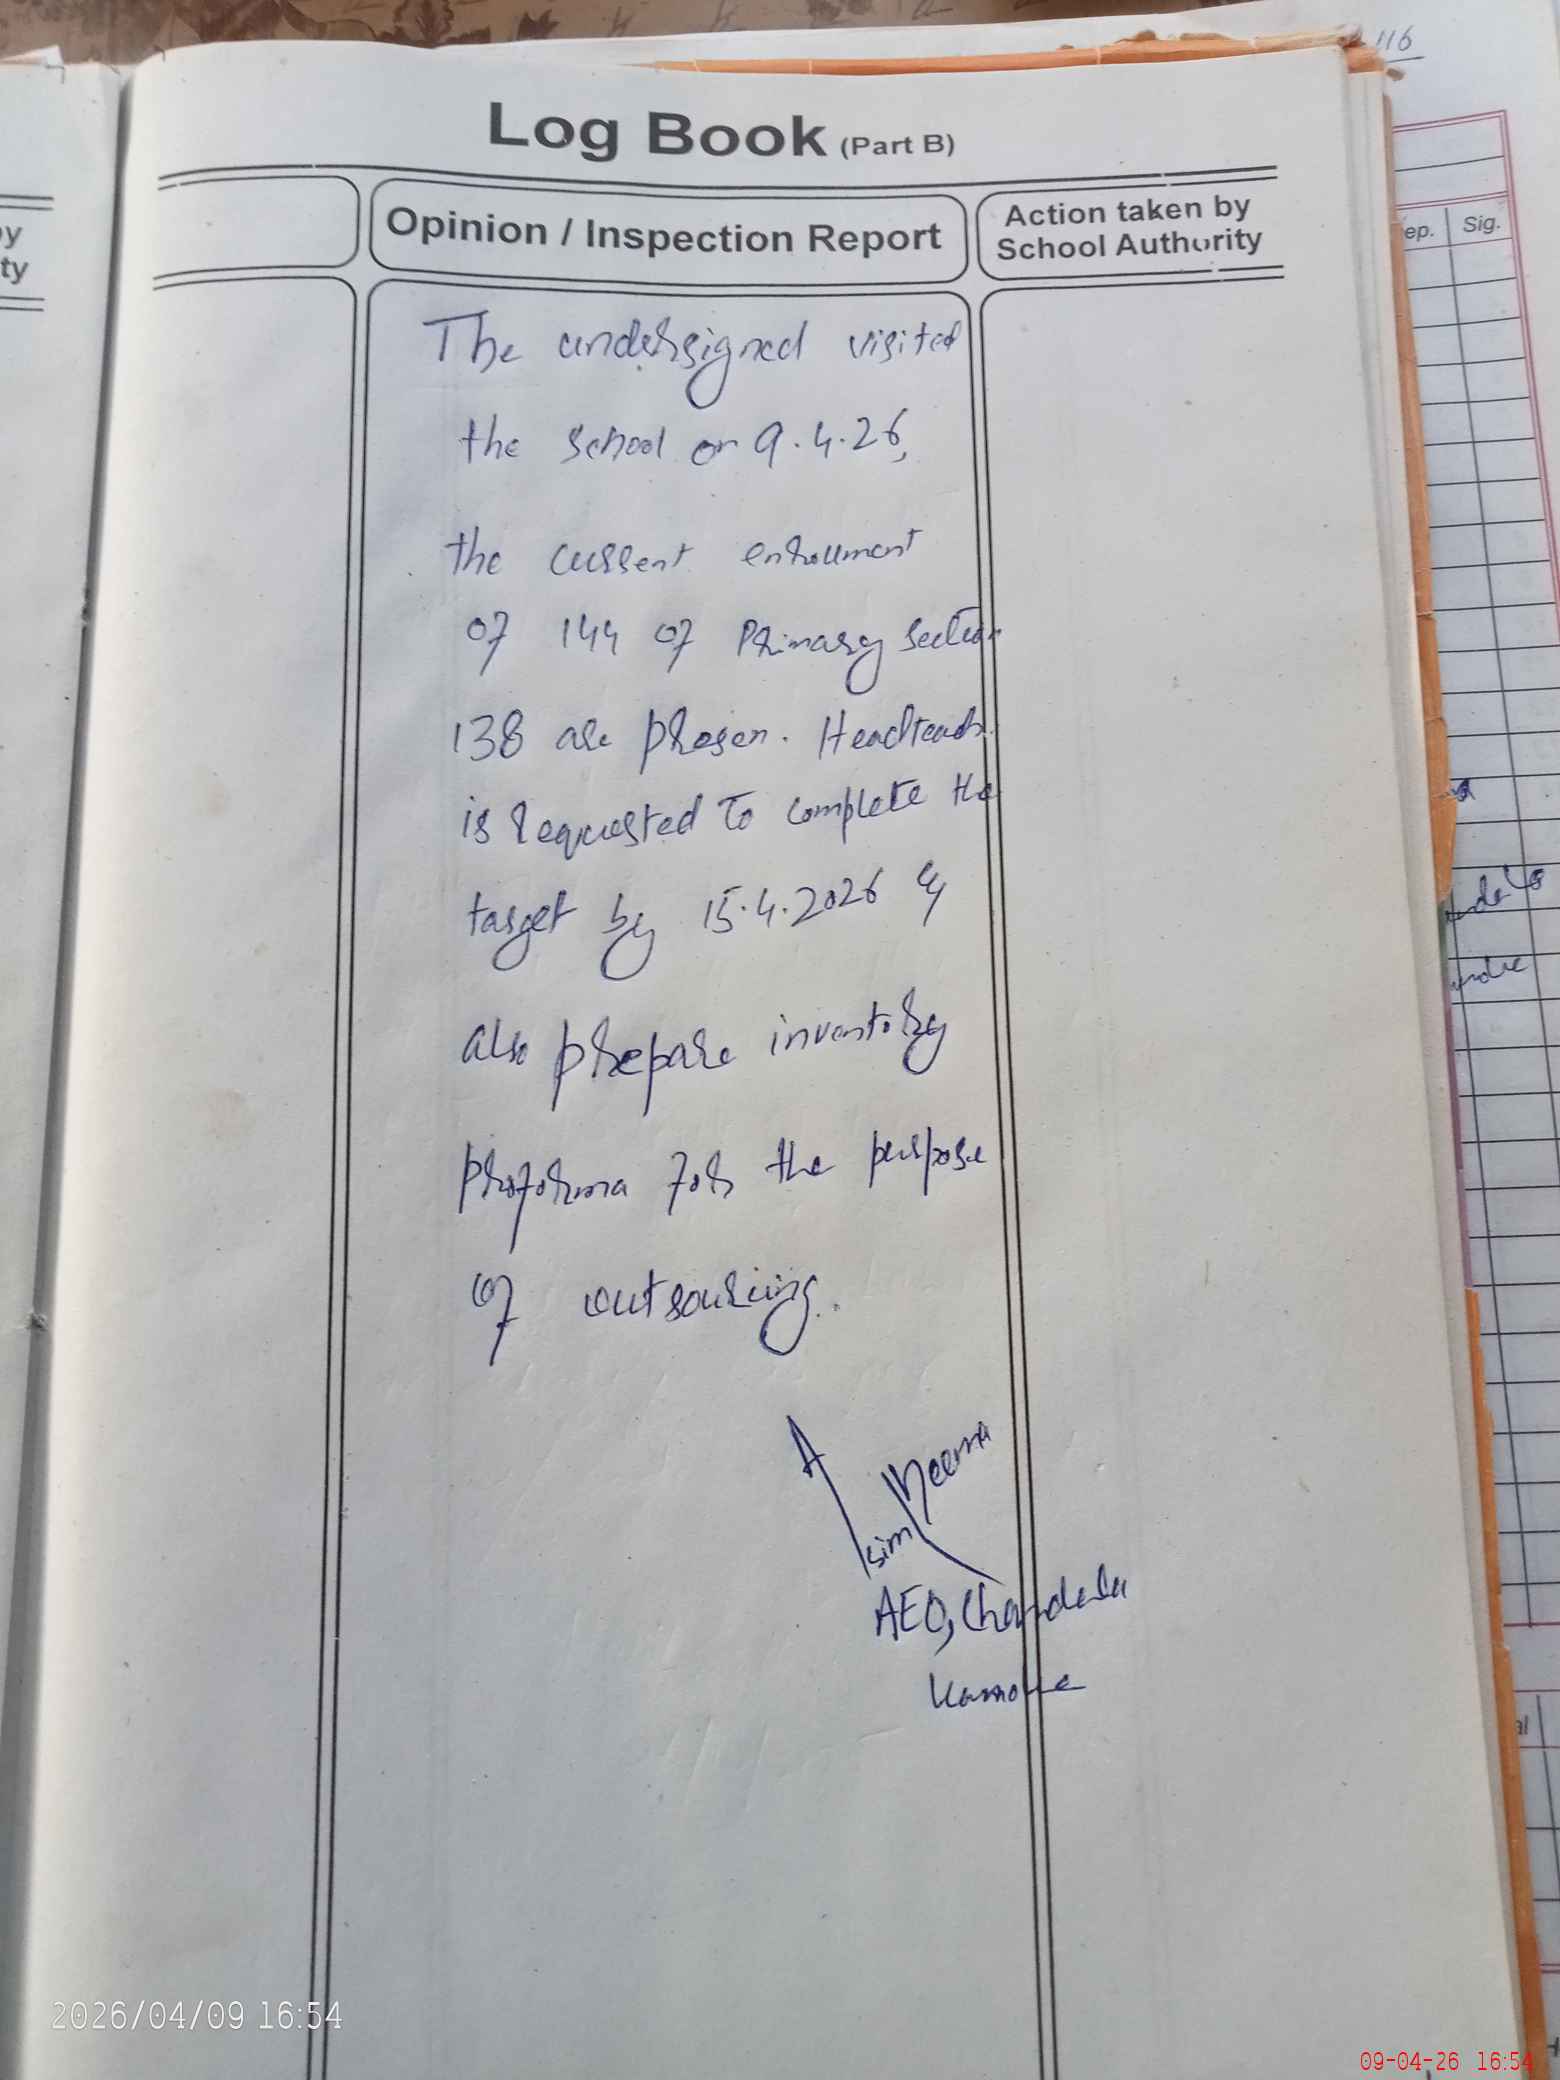 116
Log Book (Part B)
Opinion / Inspection Report
Action taken by
School Authority
ep. Sig.
y
ty
The undersigned visited
the school on 9.4.26,
the current enrollment
of 144 of Primary Section
138 are presen. Headteach
is requested to complete the
target by 15.4.2026 &
also prepare inventory
proforma for the purpose
of outsourcing.
Asim Neema
AEO, Chandala
Kamoke
al
2026/04/09 16:54
09-04-26 16:54